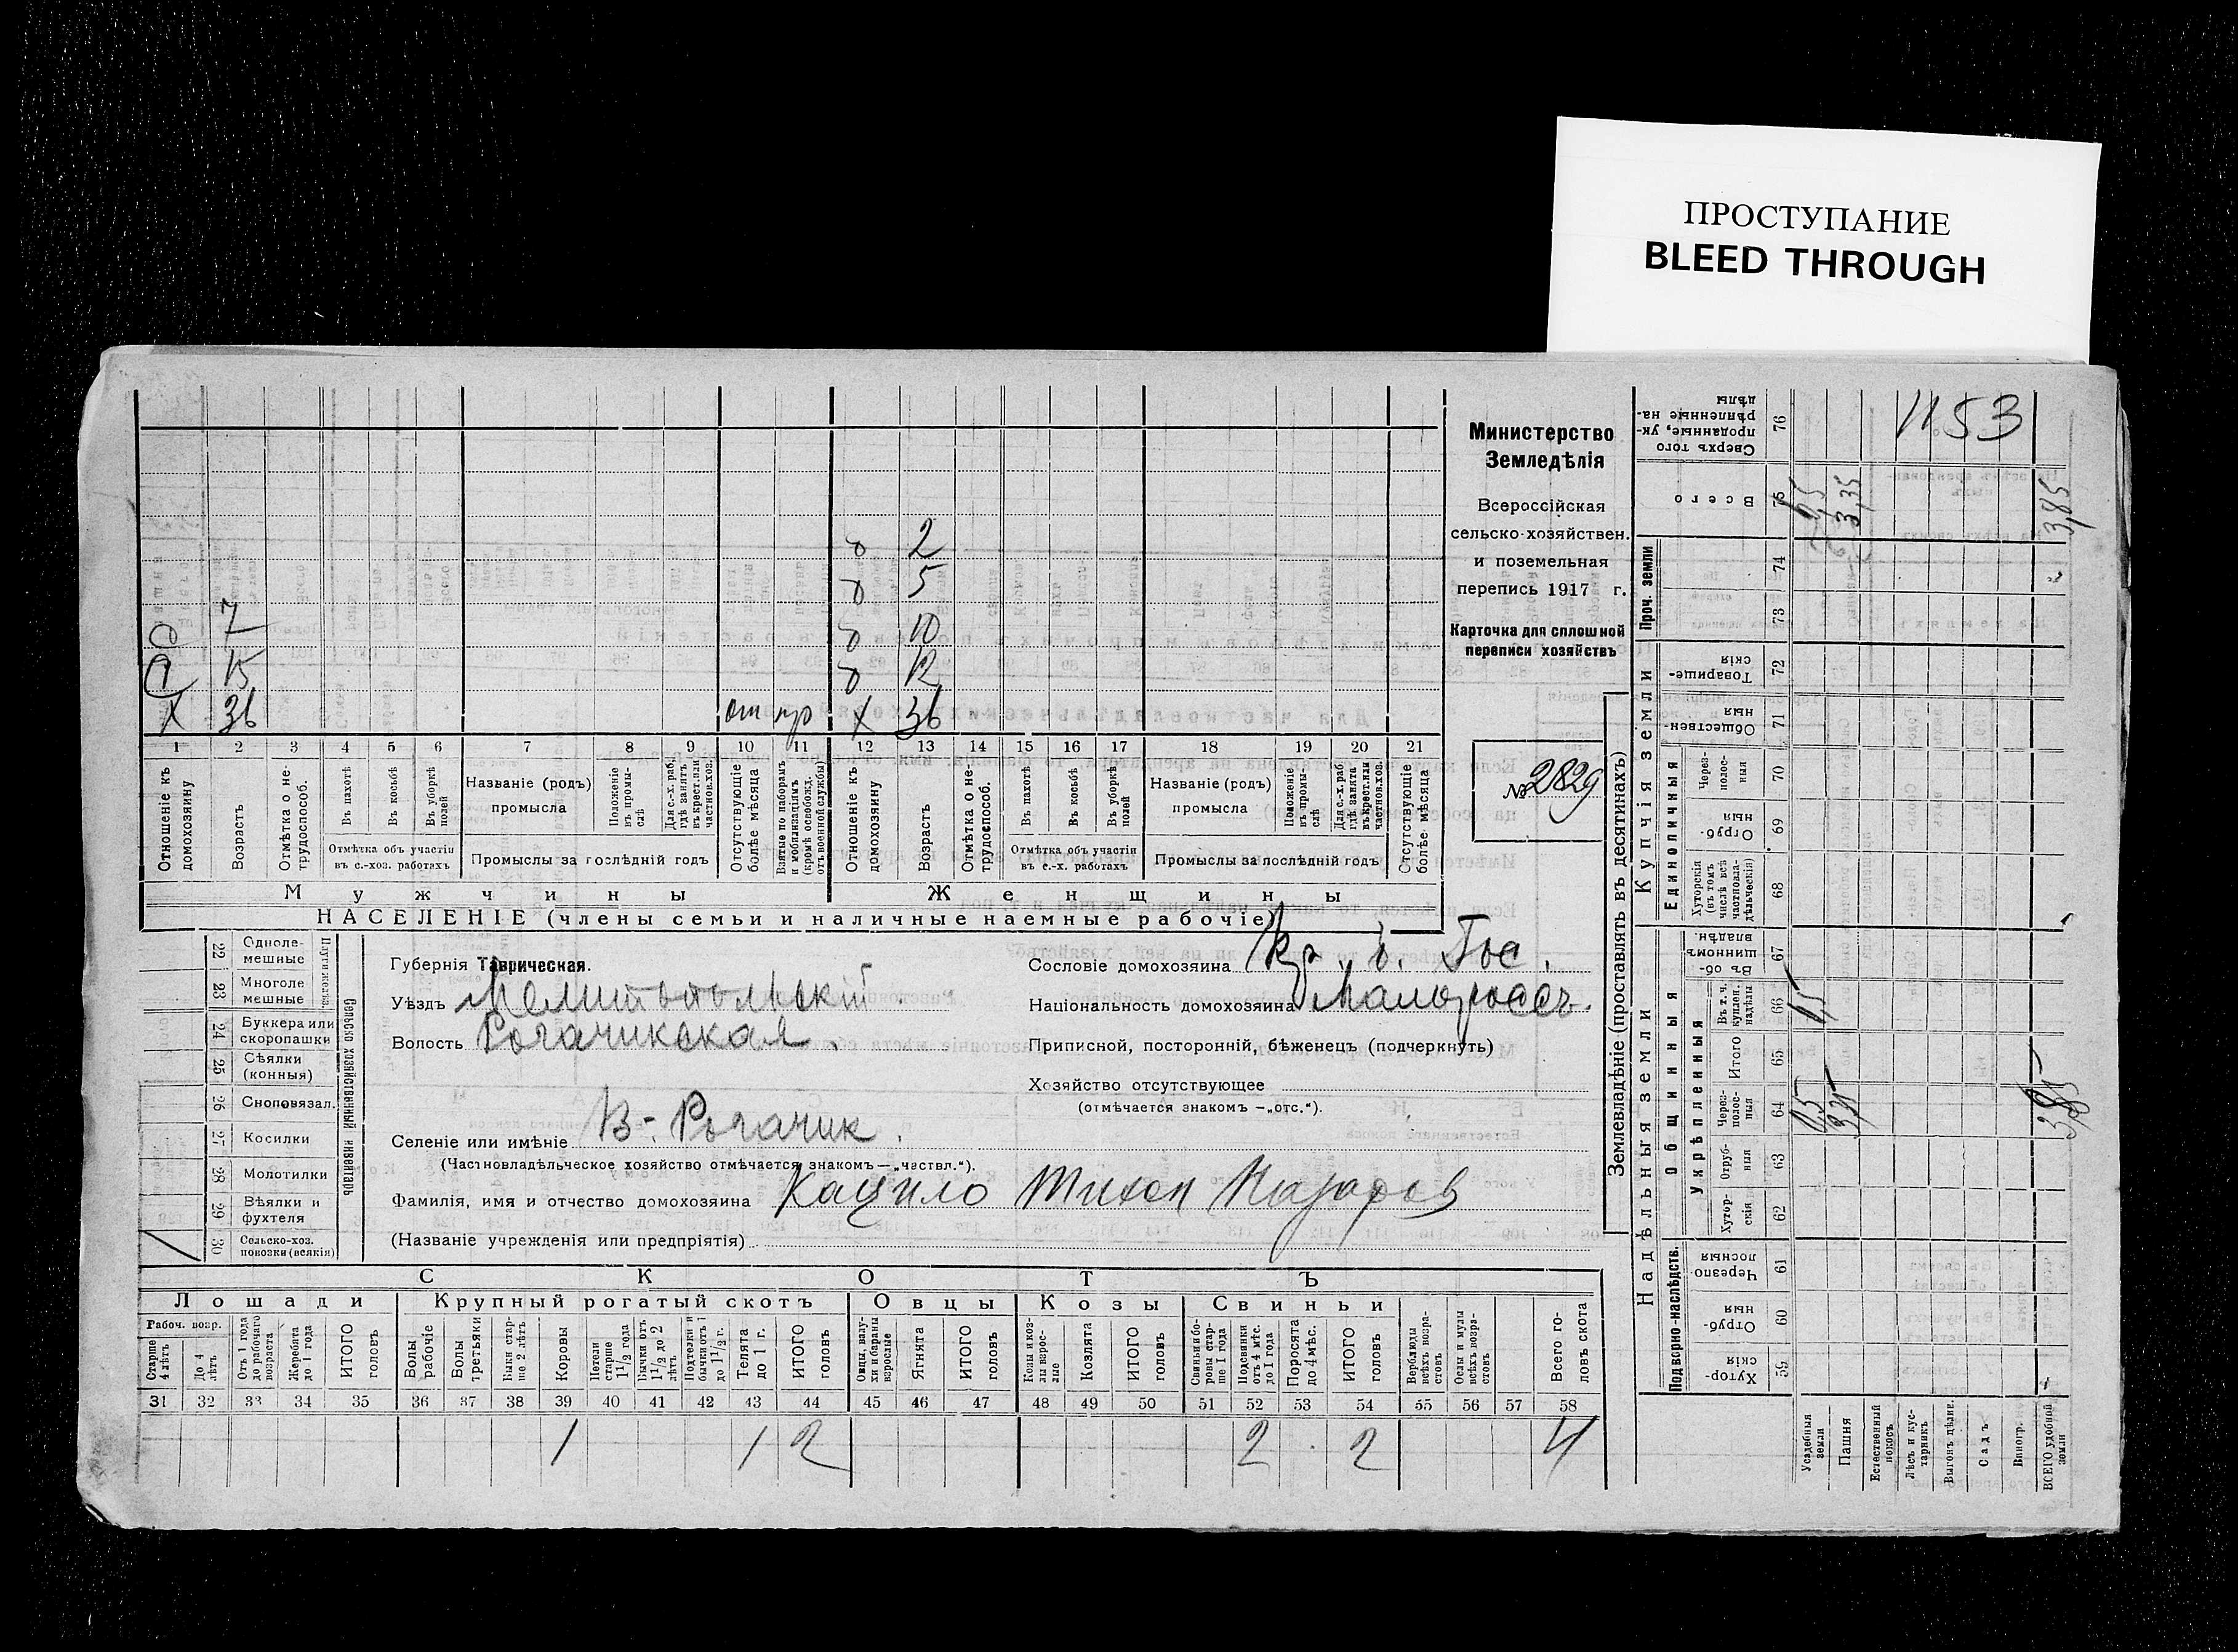 ПРОСТУПАНИЕ
BLEED THROUGH
Министерство
Земледѣлія
Всероссійская
сельско-хозяйствен.
и поземельная
перепись 1917 г.
Карточка для сплошной
переписи хозяйствъ
№ 2829
1153
2
5
7 10
15 12
Х 36 Х 36
1 2 3 4 5 6 7 8 9 10 11 12 13 14 15 16 17 18 19 20 21
Отношеніе къ домохозяину
Возрастъ
Отмѣтка о не-трудоспособ.
Въ пахотѣ
Въ косьбѣ
Въ уборкѣ полей
Отмѣтка объ участіи
въ с.-хоз. работахъ
Названіе (родъ)
промысла
Положеніе въ промы-слѣ
Для с.-х. раб. гдѣ занятъ въ крест. или частнов. хоз.
Промыслы за послѣдній годъ
Отсутствующіе болѣе мѣсяца
Взятые по наборамъ и мобилизаціямъ (кромѣ освобожд. отъ военной службы)
Отношеніе къ домохозяину
Возрастъ
Отмѣтка о не-трудоспособ.
Въ пахотѣ
Въ косьбѣ
Въ уборкѣ полей
Отмѣтка объ участіи
въ с.-х. работахъ
Названіе (родъ)
промысла
Положеніе въ промы-слѣ
Для с.-х. раб. гдѣ занята въ крест. или частнов. хоз.
Промыслы за послѣдній годъ
Отсутствующіе болѣе мѣсяца
Мужчины Женщины
НАСЕЛЕНІЕ (члены семьи и наличные наемные рабочіе)
Сельско хозяйственный инвентарь
22 Одноле-мешные
23 Многоле мешные
24 Буккера или скоропашки
25 Сѣялки (конныя)
26 Сноповязал.
27 Косилки
28 Молотилки
29 Вѣялки и фухтеля
30 Сельско-хоз. повозки (всякія)
Губернія Таврическая.
Уѣздъ Мелитопольскій
Волость Рогачикская.
Селеніе или имѣніе В-. Рогачик.
(Частновладѣльческое хозяйство отмѣчается знакомъ — „частвл.“).
Фамилія, имя и отчество домохозяина Кацило Тихон Назаров
(Названіе учрежденія или предпріятія)
Сословіе домохозяина Кр. б. Гос.
Національность домохозяина Малороссъ.
Приписной, посторонній, бѣженецъ (подчеркнуть)
Хозяйство отсутствующее
(отмѣчается знакомъ — „отс.“).
СКОТЪ
Лошади Крупный рогатый скотъ Овцы Козы Свиньи
Рабоч. возр.
Старше 4 лѣтъ
До 4 лѣтъ
Отъ 1 года до рабочаго возраста
Жеребята до 1 года
ИТОГО головъ
Волы рабочіе
Волы третьяки
Быки стар-ше 2 лѣтъ
Коровы
Нетели старше 1 1/2 года
Бычки отъ 1 1/2 до 2 лѣтъ
Подтелки и бычки отъ 1 до 1 1/2 г.
Телята до 1 г.
ИТОГО головъ
Овцы, валу-хи и бараны взрослые
Ягнята
ИТОГО головъ
Козы и коз-лы взрос-лые
Козлята
ИТОГО головъ
Свиньи и бо-ровы стар-ше 1 года
Подсвинки отъ 4 мѣс. до 1 года
Поросята до 4 мѣс.
ИТОГО головъ
Верблюды всѣхъ возра-стовъ
Ослы и мулы всѣхъ возра-стовъ
Всего го-ловъ скота
31 32 33 34 35 36 37 38 39 40 41 42 43 44 45 46 47 48 49 50 51 52 53 54 55 56 57 58
1 1 2 2 2 4
Землевладѣніе (проставлять въ десятинахъ)
Надѣльныя земли
Купчія земли
Проч. земли
Подворно-наслѣдств.
Общинныя
Укрѣпленныя
Единоличныя
59 Хутор-скія
60 Отруб-ныя
61 Черезпо лосныя
62 Хутор-скія
63 Отруб-ныя
64 Через-полос-ныя
65 Итого
66 Въ т. ч. куплен. надѣлы
67 Въ об-щинномъ владѣн.
68 Хуторскія (въ томъ числѣ всѣ частновла-дѣльческія)
69 Отруб-ныя
70 Через-полос-ныя
71 Обществен-ныя
72 Товарище-скія
73
74
75 Всего
76 Сверхъ того проданные, ук-рѣпленные на-дѣлы
Усадебныя земли
Пашня
Естественный покосъ
Лѣсъ и кус-тарникъ
Выгонъ дѣлян.
Садъ
Виногр.
ВСЕГО удобной земли
3,35
3,85